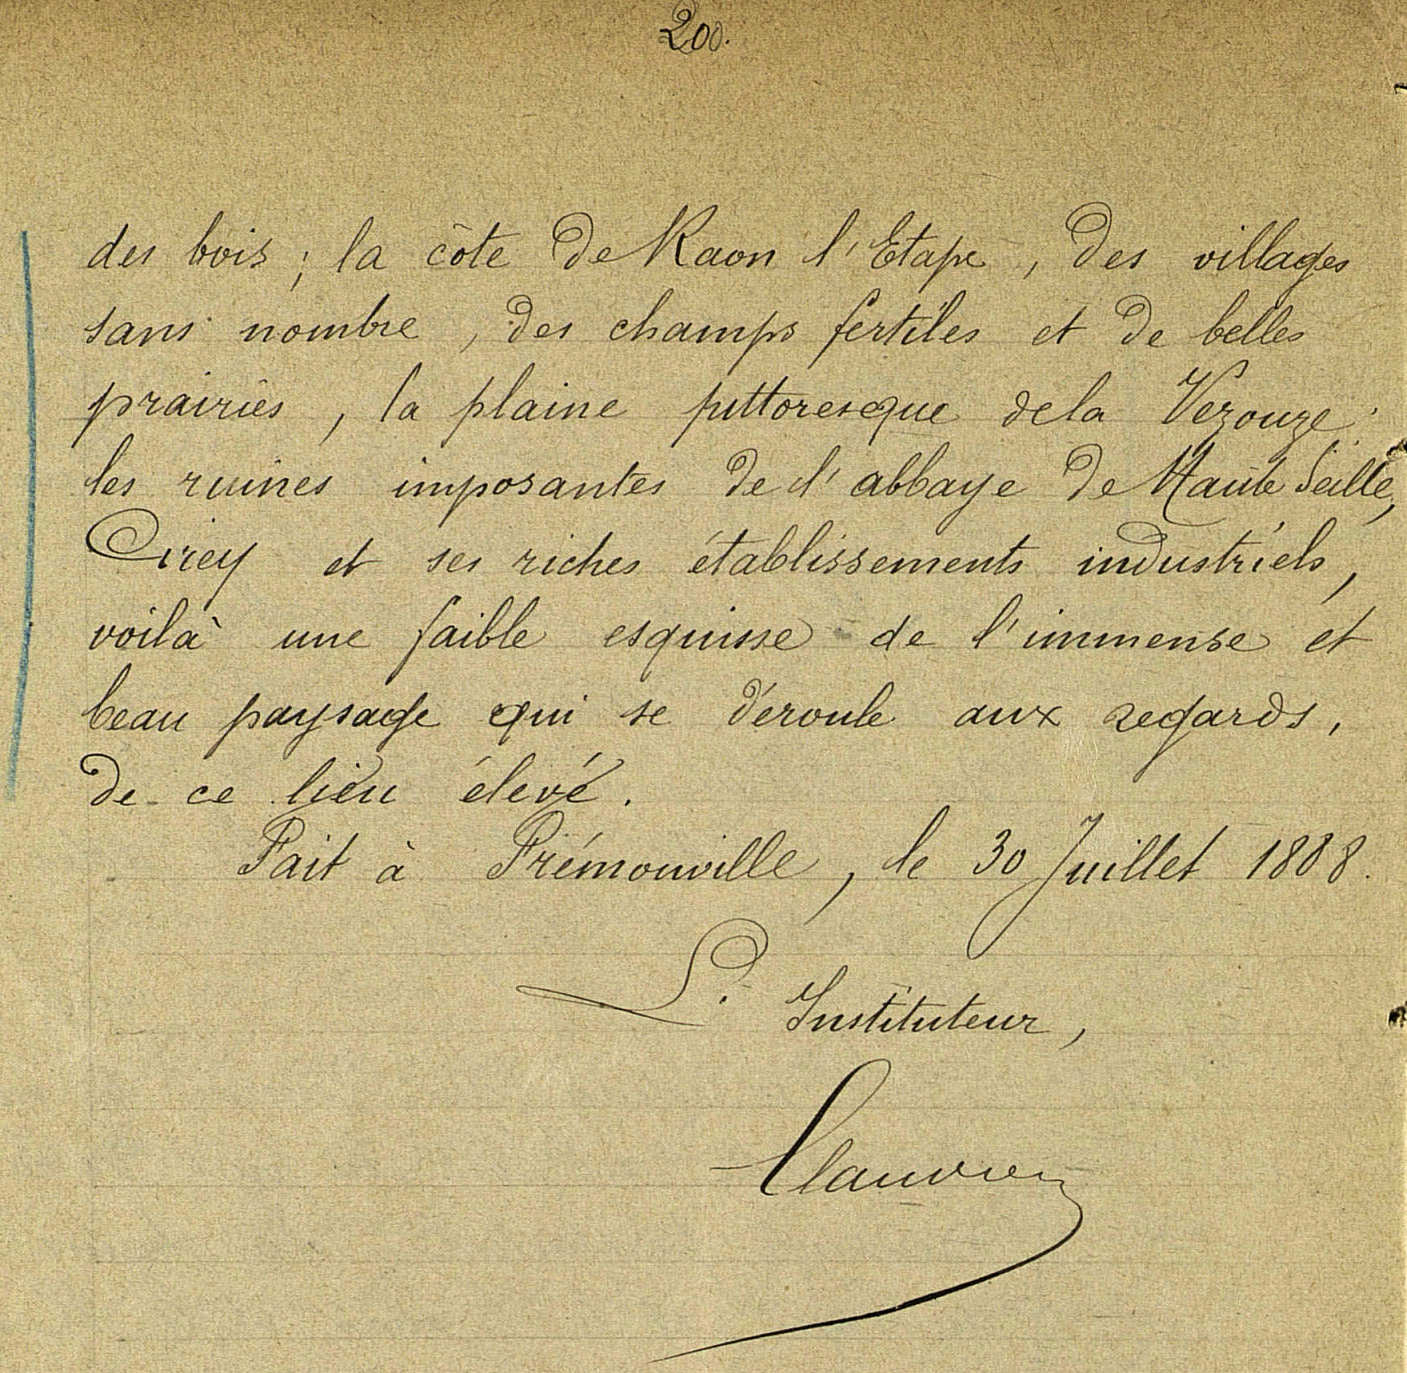 200.
des bois ; la côte de Raon l'Etape, des villages
sans nombre, des champs fertiles et de belles
prairies, la plaine pittoresque de la Vezouze.
les ruines imposantes de l'abbaye de Haute Seille,
Cirey et ses riches établissements industriels,
voilà une faible esquisse de l'immense et
beau paysage qui se déroule aux regards,
de ce lieu élevé.
Fait à Frémonville, le 30 Juillet 1888.
L'Instituteur,